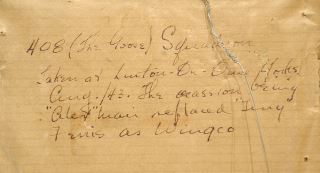 408 (The Goose) Squadron
Taken at Linton-On-Ouse, Yorks
Aug. /43. The ocassion being
"Alex" Mair replaced "Tiny
Ferris as Wingco